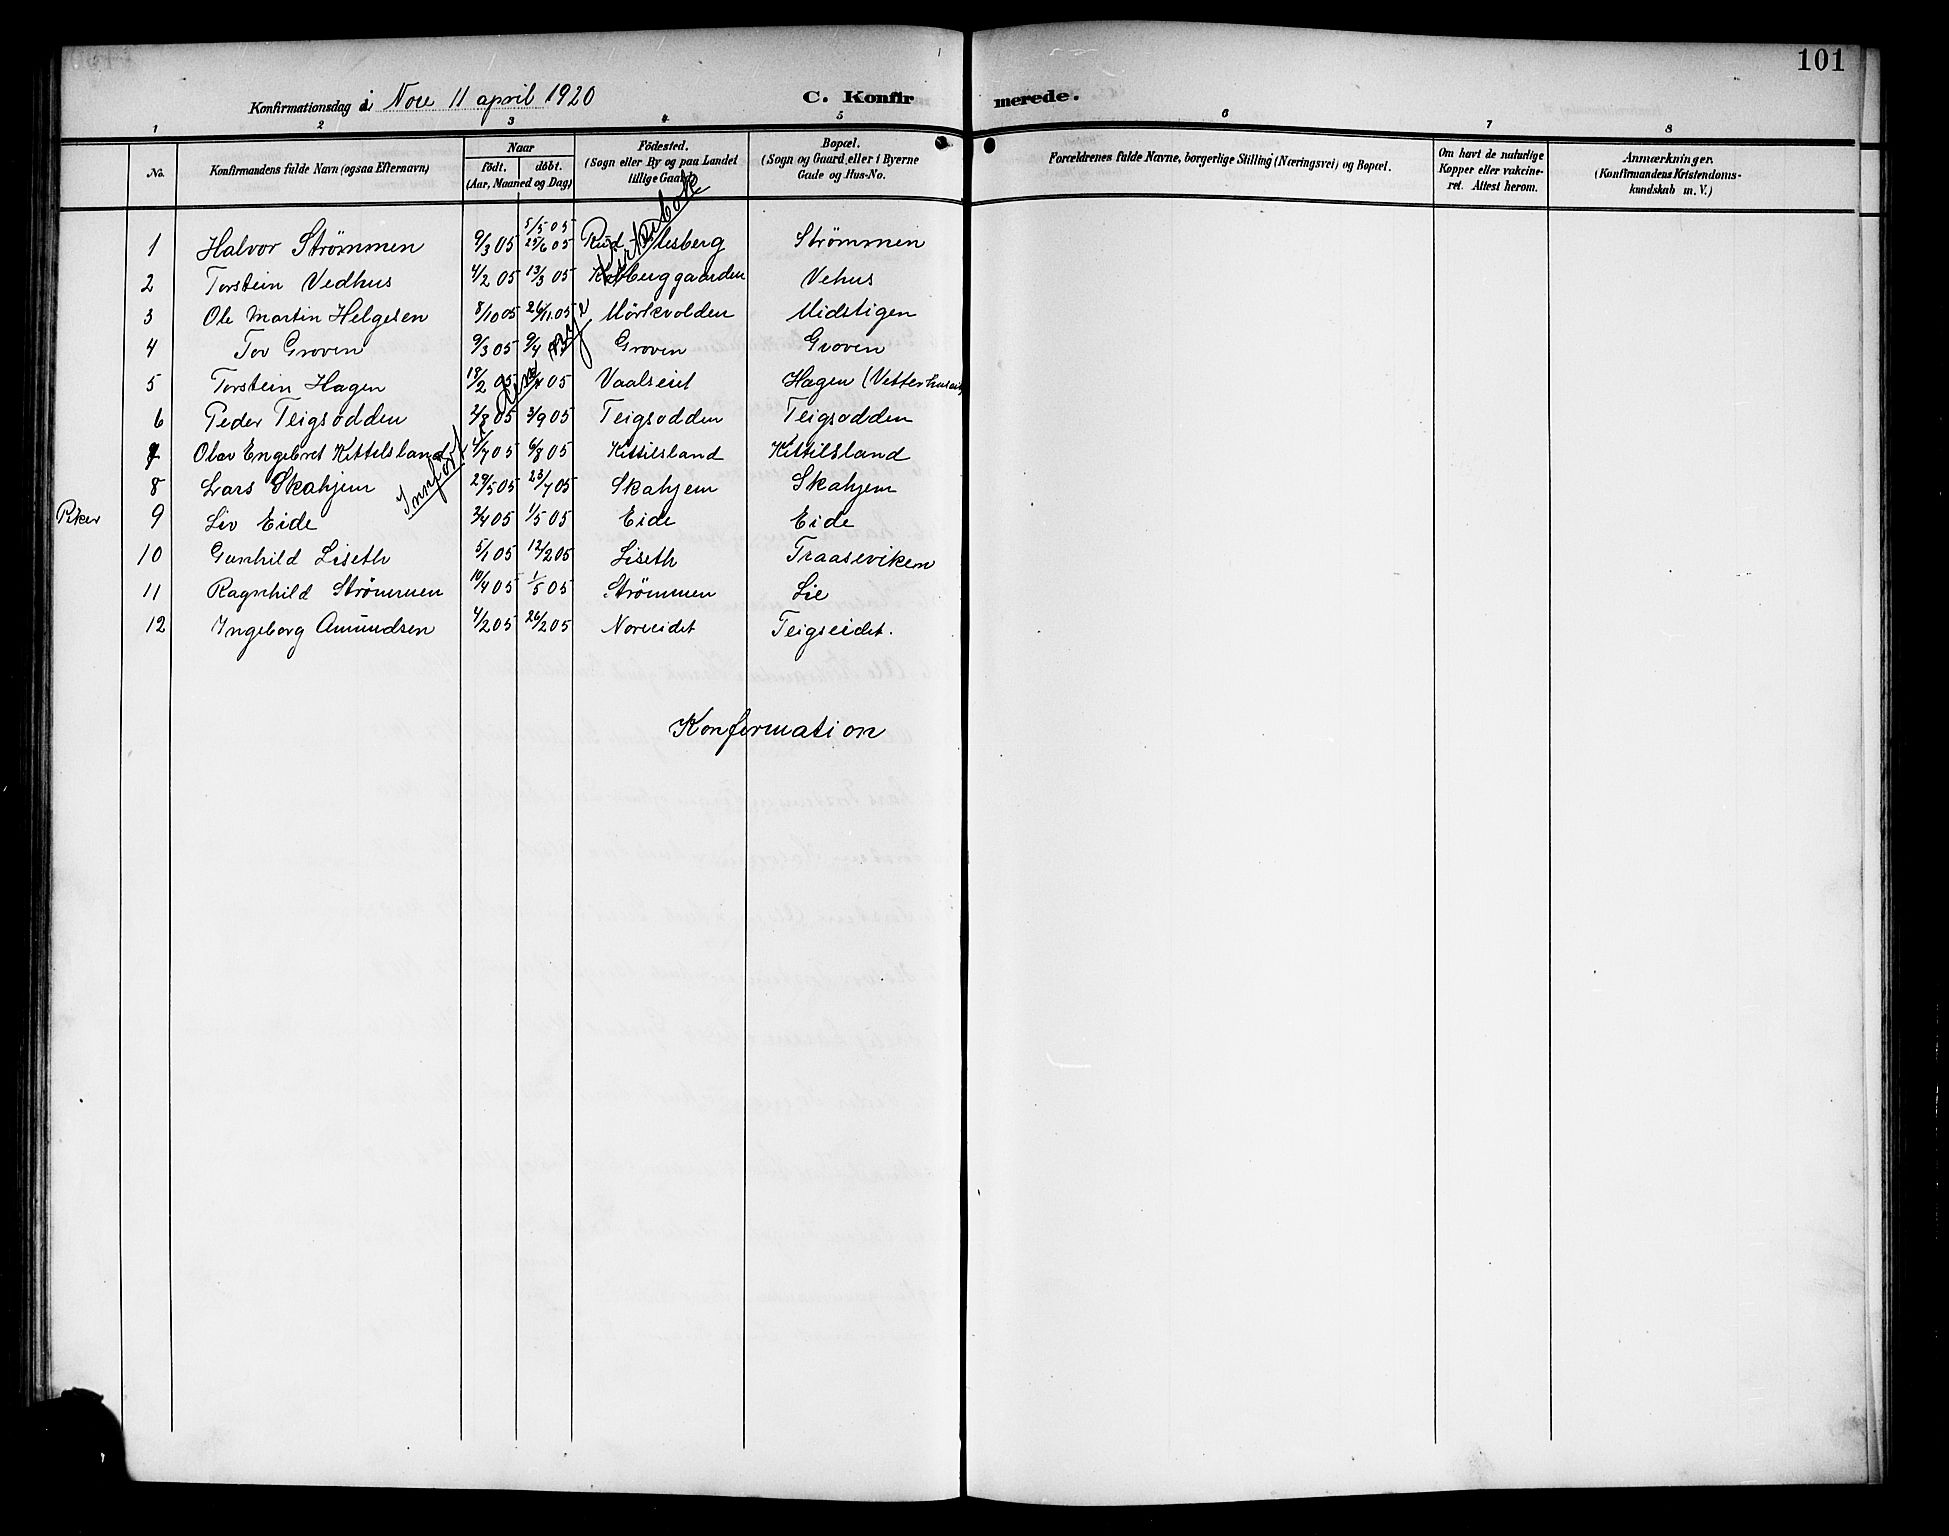 101
Konfirmationsdag i Nore 11 april 1920
C. Konfir merede.
1 2 3 4 5 6 7 8
No.
Konfirmandens fulde Navn (ogsaa Efternavn)
Naar
födt. döbt.
(Aar, Maaned og Dag)
Födested.
(Sogn eller By og paa Landet
tillige Gaard)
Bopæl.
(Sogn og Gaard, eller i Byerne
Gade og Hus-No.
Forældrenes fulde Navne, borgerlige Stilling (Næringsvei) og Bopæl.
Om havt de naturlige
Kopper eller vakcine-
ret. Attest herom.
Anmærkninger.
(Konfirmandens Kristendoms-
kundskab m. V.)
5/5 05
1 Halvor Strömmen 9/3 05 25/6 05 Rud Strömmen
2 Torstein Vedhus 4/2 05 13/3 05 Vehus
3 Ole Martin Helgesen 8/10 05 26/11 05 Mörkvolden Midstigen
4 Tov Groven 9/3 05 9/4 Groven Groven
5 Torstein Hagen 18/2 05 05 Vaalseiet Hagen
6 Peder Teigsodden 2/8 05 3/9 05 Teigsodden Teigsodden
7 Olav Engebret Kittilsland 4/7 05 6/8 05 Kittilsland Kittilsland
8 Lars Skahjem 29/5 05 23/7 05 Skahjem Skahjem
Piker 9 Liv Eide 3/4 05 1/5 05 Eide Eide
10 Gunhild Liseth 5/1 05 12/2 05 Liseth Traaseviken
11 Ragnhild Strömmen 10/4 05 1/5 05 Strömmen Lie
12 Ingeborg Amundsen 4/2 05 26/2 05 Noreeidet Teigseidet.
Innført i den nye kirkebok
Konfirmation